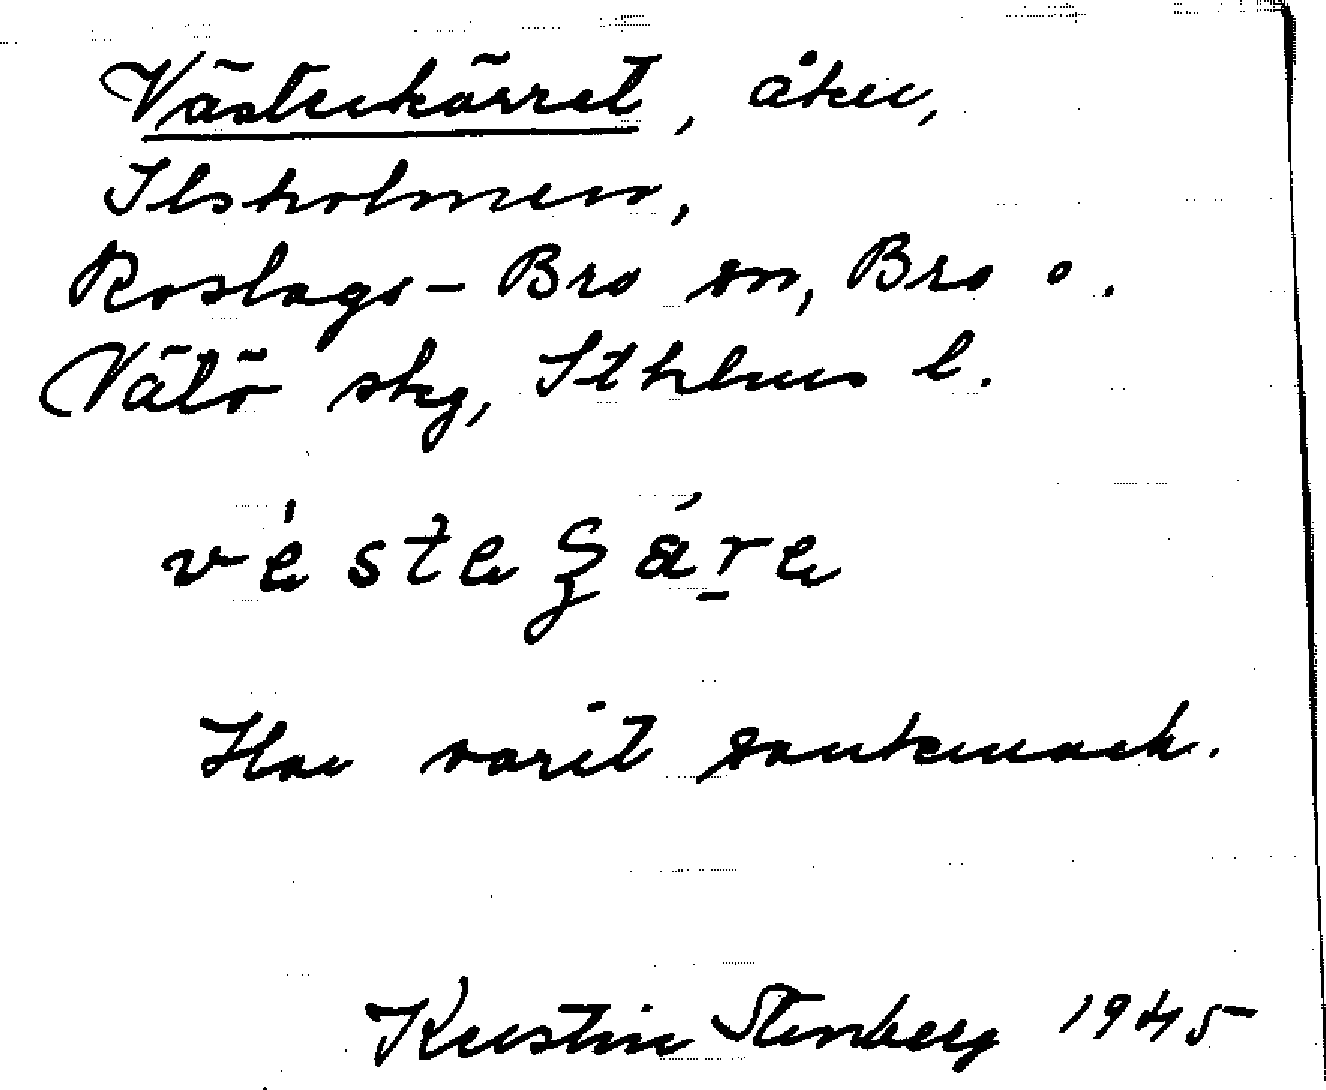 Västerkärret, åker,
Ilsholmen,
Roslags-Bro sn, Bro o.
Vätö skg, Sthlms l.
Har varit sankmark.
Kerstin Stenberg 1945